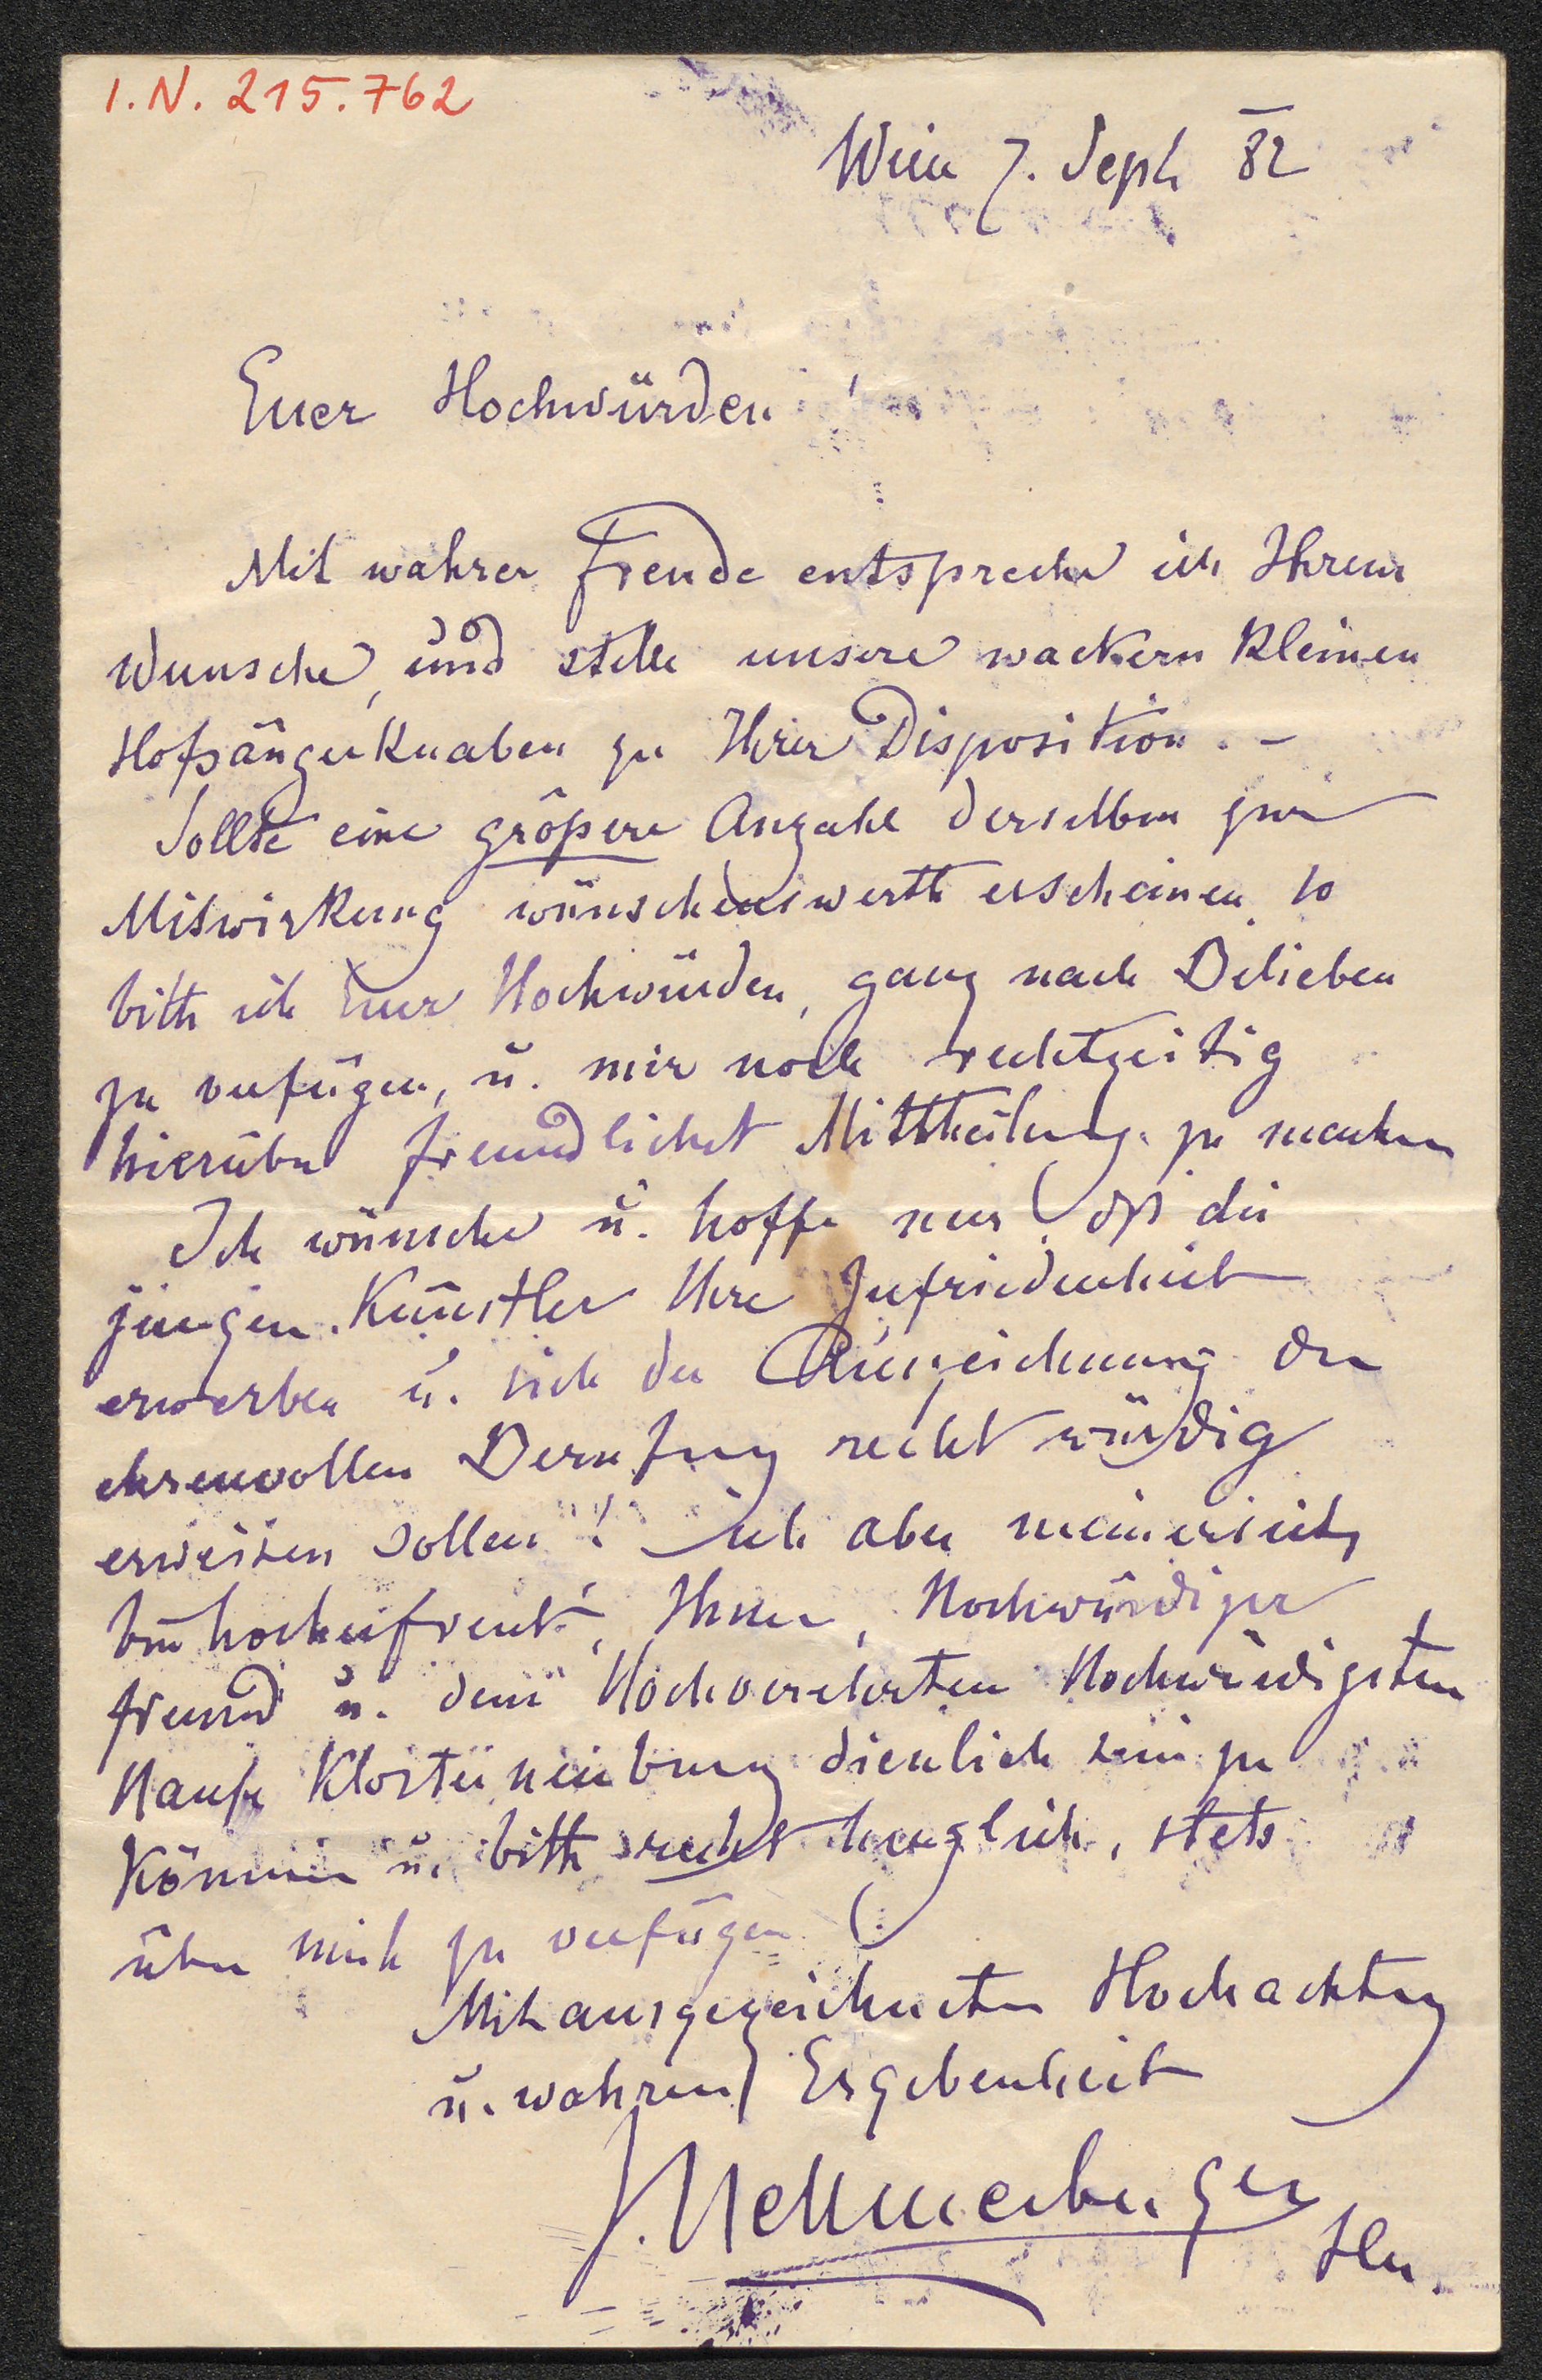 I.N. 215.762
Wien 7. Sept 82
Euer Hochwürden!
Mit wahrer Freude entspreche ich Ihrem
Wunsche, und stelle unsere wackern kleinen
Hofsängerknaben zu Ihrer Disposition. –
Sollte eine größere Anzahl derselben zur
Mitwirkung wünschenswerth erscheinen, so
bitte ich Euer Hochwürden, ganz nach Belieben
zu verfügen, u. mir noch rechtzeitig
hierüber freundlichst Mittheilung zu machen
Ich wünsche u. hoffe nur, daß die
jungen Künstler Ihre Zufriedenheit
erwerben u. sich der Auszeichnung der
ehrenvollen Berufung recht würdig
erweisen sollen! ich aber meinerseits
bin hocherfreut, Ihnen, Hochwürdiger
Freund u. dem Hochverehrten Hochwürdigsten
Hause Klosterneuburg dienlich sein zu
können u. bitte recht herzlich, stets
über mich zu verfügen
Mit ausgezeichneter Hochachtung
u. wahrer Ergebenheit
J. Hellmesberger